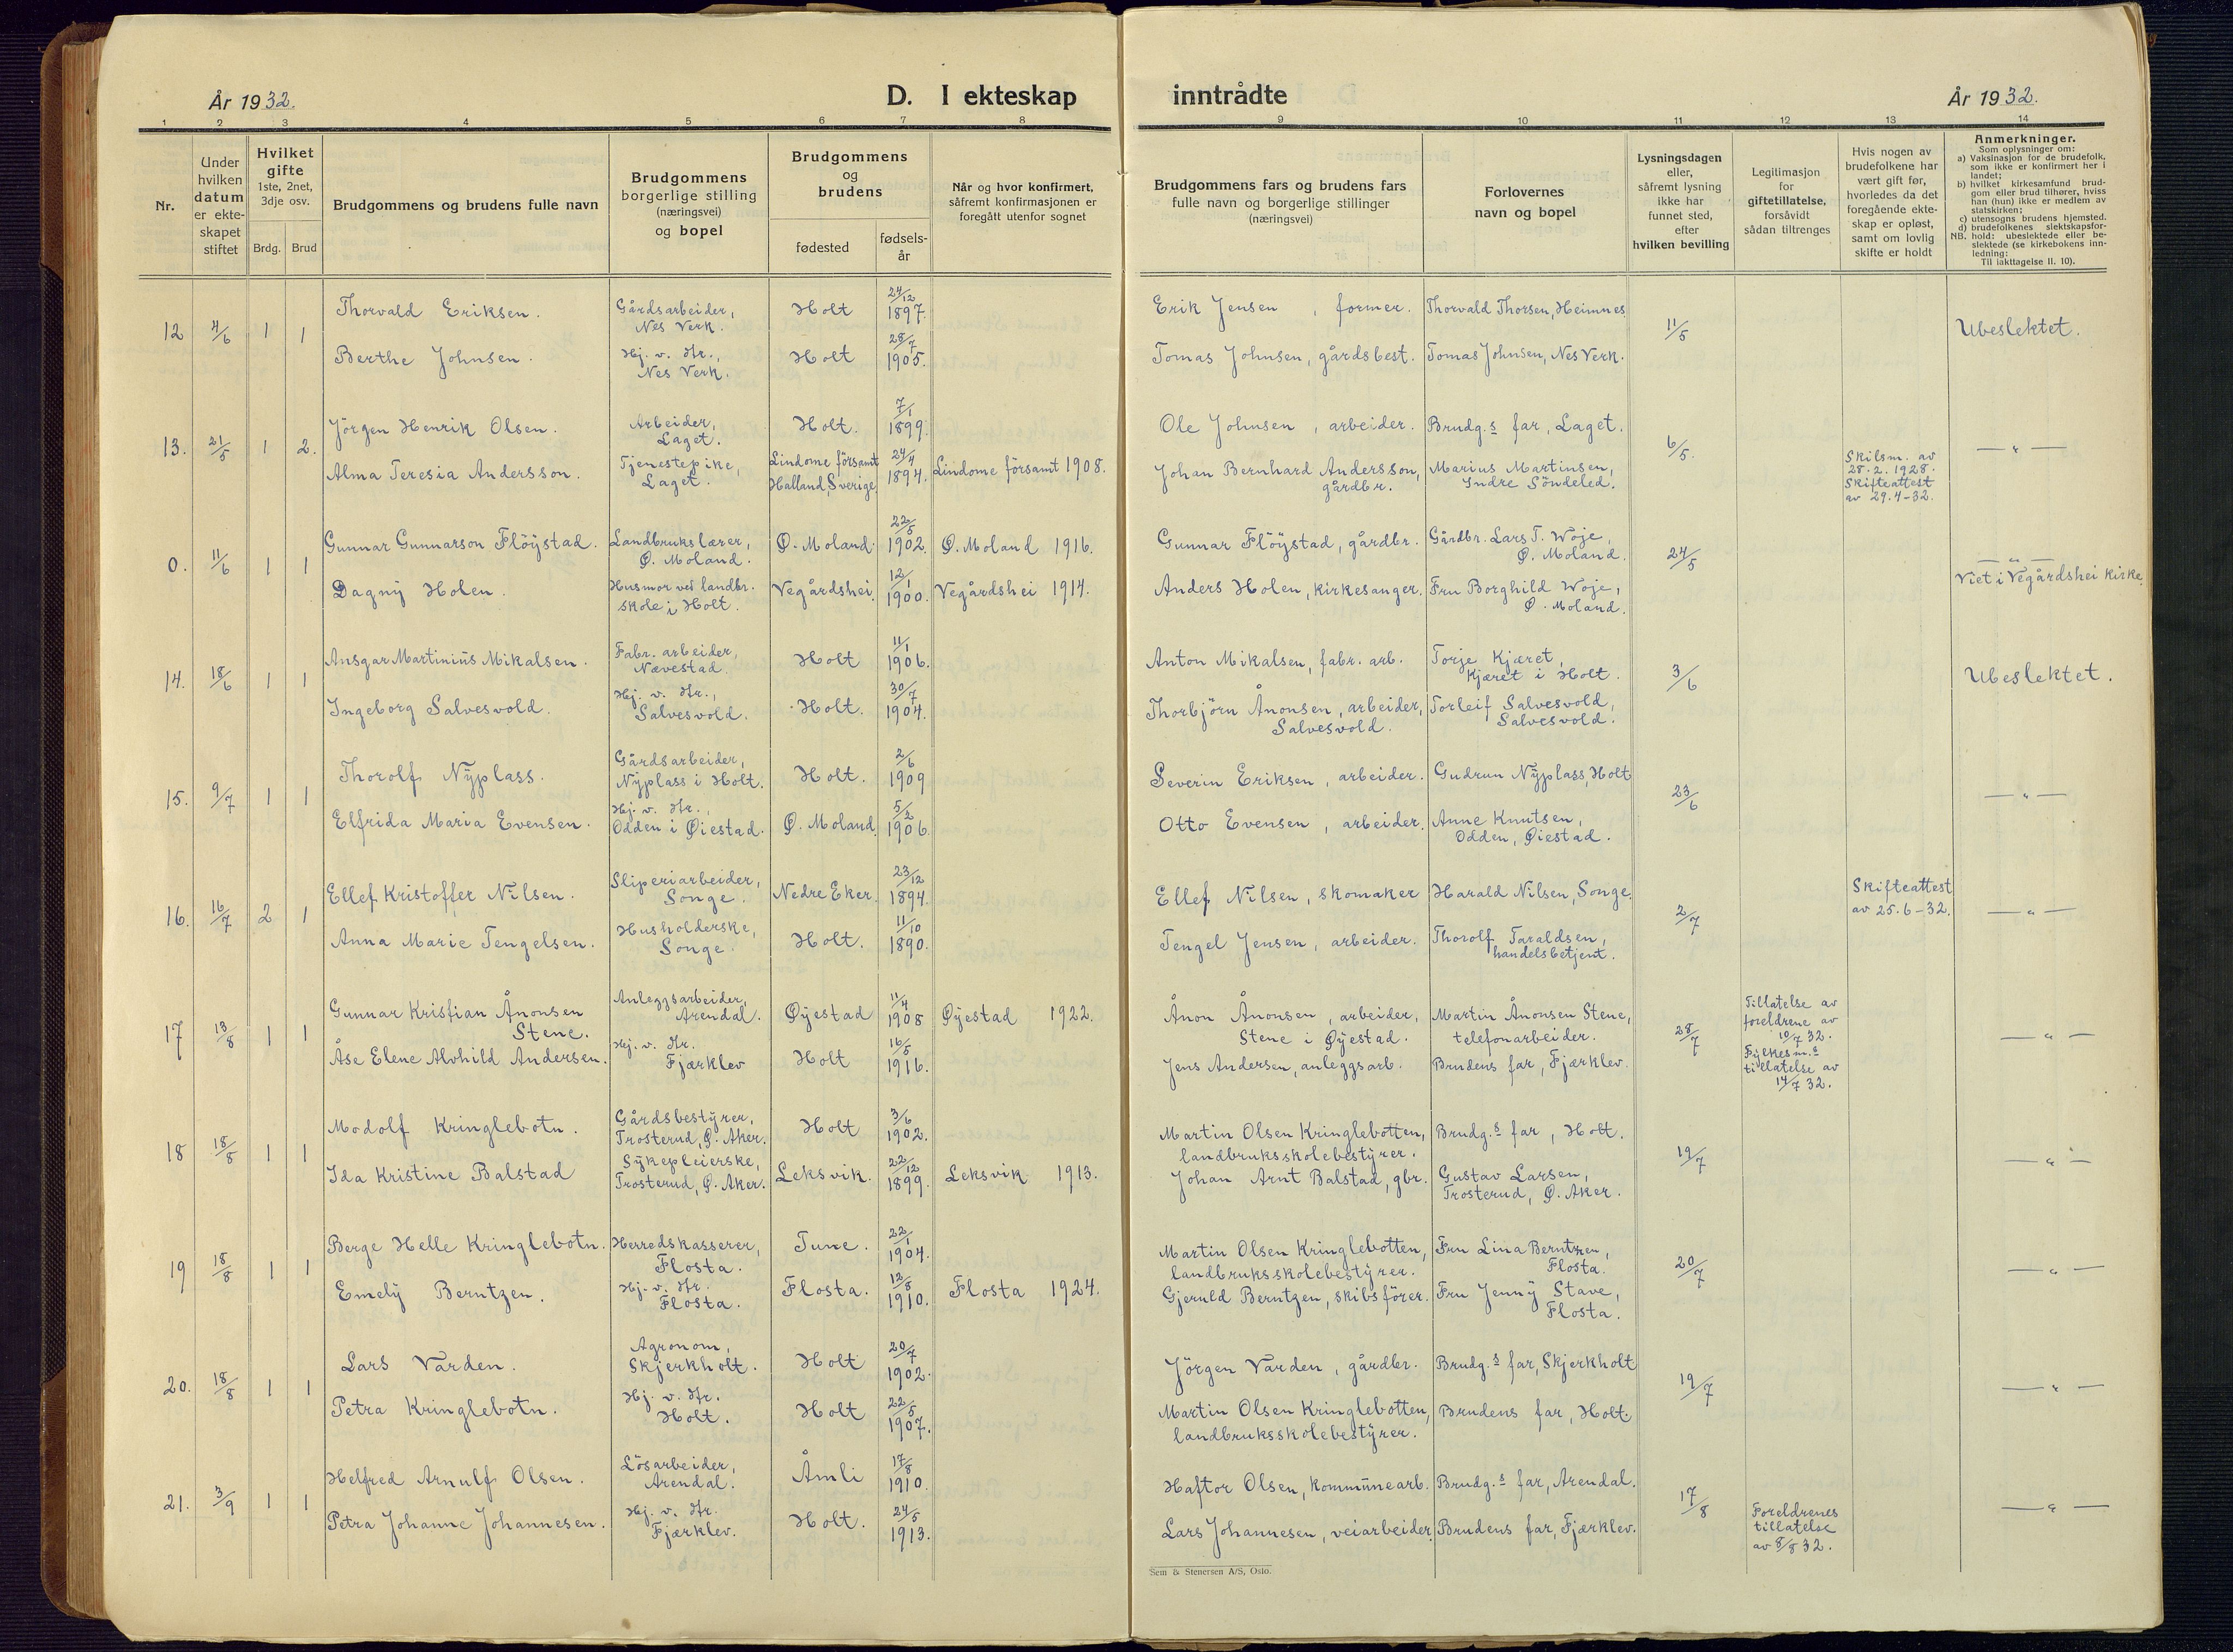 År 1932.
D. I ekteskap inntrådte
År 1932.
1 2 3 4 5 6 7 8 9 10 11 12 13 14
Nr.
Under
hvilken
datum
er ekte-
skapet
stiftet
Hvilket
gifte
1ste, 2net,
3dje osv.
Brdg. Brud
Brudgommens og brudens fulle navn
Brudgommens
borgerlige stilling
(næringsvei)
og bopel
Brudgommens
og
brudens
fødested
fødsels-
år
Når og hvor konfirmert,
såfremt konfirmasjonen er
foregått utenfor sognet
Brudgommens fars og brudens fars
fulle navn og borgerlige stillinger
(næringsvei)
Forlovernes
navn og bopel
Lysningsdagen
eller,
såfremt lysning
ikke har
funnet sted,
efter
hvilken bevilling
Legitimasjon
for
giftetillatelse,
forsåvidt
sådan tiltrenges
Hvis nogen av
brudefolkene har
vært gift før,
hvorledes da det
foregående ekte-
skap er opløst,
samt om lovlig
skifte er holdt
Anmerkninger.
Som oplysninger om:
a) Vaksinasjon for de brudefolk,
som ikke er konfirmert her i
landet;
b) hvilket kirkesamfund brud-
gom eller brud tilhører, hviss
han (hun) ikke er medlem av
statskirken;
c) utensogns brudens hjemsted.
d) brudefolkenes slektskapsfor-
NB. hold: ubeslektede eller be-
slektede (se kirkebokens inn-
ledning:
Til iakttagelse II. 10).
12 4/6 1 1
Thorvald Eriksen.
Gårdsarbeider,
Nes Verk.
Holt
24/12
1897.
Erik Jensen, former.
Thorvald Thorsen, Heimnes
11/5
Ubeslektet.
Berthe Johnsen.
Hj. v. Hr.,
Nes Verk.
Holt
28/7
1905.
Tomas Johnsen, gårdsbest.
Tomas Johnsen, Nes Verk.
13. 21/5 1 2.
Jörgen Henrik Olsen.
Arbeider,
Laget.
Holt.
7/1
1899.
Ole Johnsen, arbeider.
Brudg.s far, Laget.
6/5.
Skilsm. av
28.2.1928.
Skifteattest
av 29.4-32.
— " —
Alma Teresia Andersson.
Tjenestepike,
Laget.
Lindome församt
Halland, Sverige.
24/4
1894.
Lindome församt 1908.
Johan Bernhard Andersson,
gårdbr.
Marius Martinsen,
Indre Söndeled.
0. 11/6 1 1
Gunnar Gunnarson Flöÿstad.
Landbrukslærer,
Ø. Moland.
Ø. Moland.
22/5
1902.
Ø. Moland 1916.
Gunnar Flöÿstad, gårdbr.
Gårdbr. Lars T. Woje,
Ø. Moland.
24/5
— " —
Viet i Vegårdshei kirke.
Dagnÿ Holen.
Husmor ved landbr.
skole i Holt.
Vegårdshei.
12/1
1900.
Vegårdshei 1914.
Anders Holen, kirkesanger.
Fru Borghild Woje,
Ø. Moland.
14. 18/6 1 1
Ansgar Martinius Mikalsen.
Fabr. arbeider,
Nævestad.
Holt
11/1
1906.
Anton Mikalsen, fabr. arb.
Torje Kjæret,
Kjæret i Holt.
3/6
Ubeslektet.
Ingeborg Salvesvold.
Hj. v. Hr.,
Salvesvold.
Holt.
30/7
1904.
Thorbjörn Ånonsen, arbeider,
Salvesvold.
Torleif Salvesvold,
Salvesvold.
15. 9/7 1 1
Thorolf Nÿplass.
Gårdsarbeider,
Nÿplass i Holt.
Holt.
2/6
1909
Severin Eriksen, arbeider.
Gudrun Nÿplass, Holt
23/6
— " —
Elfrida Maria Evensen.
Hj. v. Hr.,
Odden i Øiestad.
Ø. Moland.
5/2
1906.
Otto Evensen, arbeider.
Anne Knutsen,
Odden, Øiestad.
16. 16/7 2 1
Ellef Kristoffer Nilsen.
Sliperiarbeider,
Songe.
Nedre Eker.
23/12
1894.
Ellef Nilsen, skomaker
Harald Nilsen, Songe.
2/7
Skifteattest
av 25.6-32.
— " —
Anna Marie Tengelsen.
Husholderske,
Songe.
Holt.
11/10
1890.
Tengel Jensen, arbeider.
Thorolf Taraldsen,
handelsbetjent.
17 13/8 1 1
Gunnar Kristian Ånonsen
Stene.
Anleggsarbeider,
Arendal.
Øÿestad
11/4
1908
Øÿestad 1922.
Ånon Ånonsen, arbeider,
Stene i Øÿestad.
Martin Ånonsen Stene,
telefonarbeider.
28/7
Tillatelse av
foreldrene av
10/7 32.
Fÿlkesm.s
tillatelse av
14/7 32.
— " —
Åse Elene Alvhild Andersen.
Hj. v. Hr.
Fjærklev
Holt
16/5
1916.
Jens Andersen, anleggsarb.
Brudens far, Fjærklev.
18 18/8 1 1
Modolf Kringlebotn.
Gårdsbestÿrer,
Trosterud, Ø. Aker.
Holt
3/6
1902.
Martin Olsen Kringlebotten,
landbruksskolebestÿrer.
Brudg.s far, Holt.
19/7
— " —
Ida Kristine Balstad
Sÿkepleierske,
Trosterud, Ø. Aker.
Leksvik.
22/12
1899.
Leksvik 1913.
Johan Arnt Balstad, gbr.
Gustav Larsen,
Trosterud, Ø. Aker.
19 18/8 1 1
Berge Helle Kringlebotn.
Herredskasserer,
Flosta.
Tune.
22/1
1904.
Martin Olsen Kringlebotten,
landbruksskolebestÿrer.
Fru Lina Berntzen,
Flosta.
20/7
— " —
Emelÿ Berntzen.
Hj. v. Hr.
Flosta.
Flosta.
12/8
1910.
Flosta 1924.
Gjeruld Berntzen, skibsförer.
Fru Jennÿ Stave,
Flosta.
20. 18/8 1 1
Lars Varden.
Agronom,
Skjerkholt.
Holt
20/7
1902.
Jörgen Varden, gårdbr.
Brudg.s far, Skjerkholt
19/7
— " —
Petra Kringlebotn.
Hj. v. Hr.
Holt.
Holt
22/5
1907.
Martin Olsen Kringlebotten,
landbruksskolebestÿrer.
Brudens far, Holt.
21. 3/9 1 1
Helfred Arnulf Olsen.
Lösarbeider,
Arendal.
Åmli
17/8
1910.
Haftor Olsen, kommunearb.
Brudg.s far, Arendal.
17/8
Foreldrenes
tillatelse
av 8/8 32.
— " —
Petra Johanne Johannesen.
Hj. v. Hr.
Fjærklev.
Holt.
24/5
1913.
Lars Johannesen, veiarbeider.
Brudens far, Fjærklev.
Sem & Stenersen A/S, Oslo.